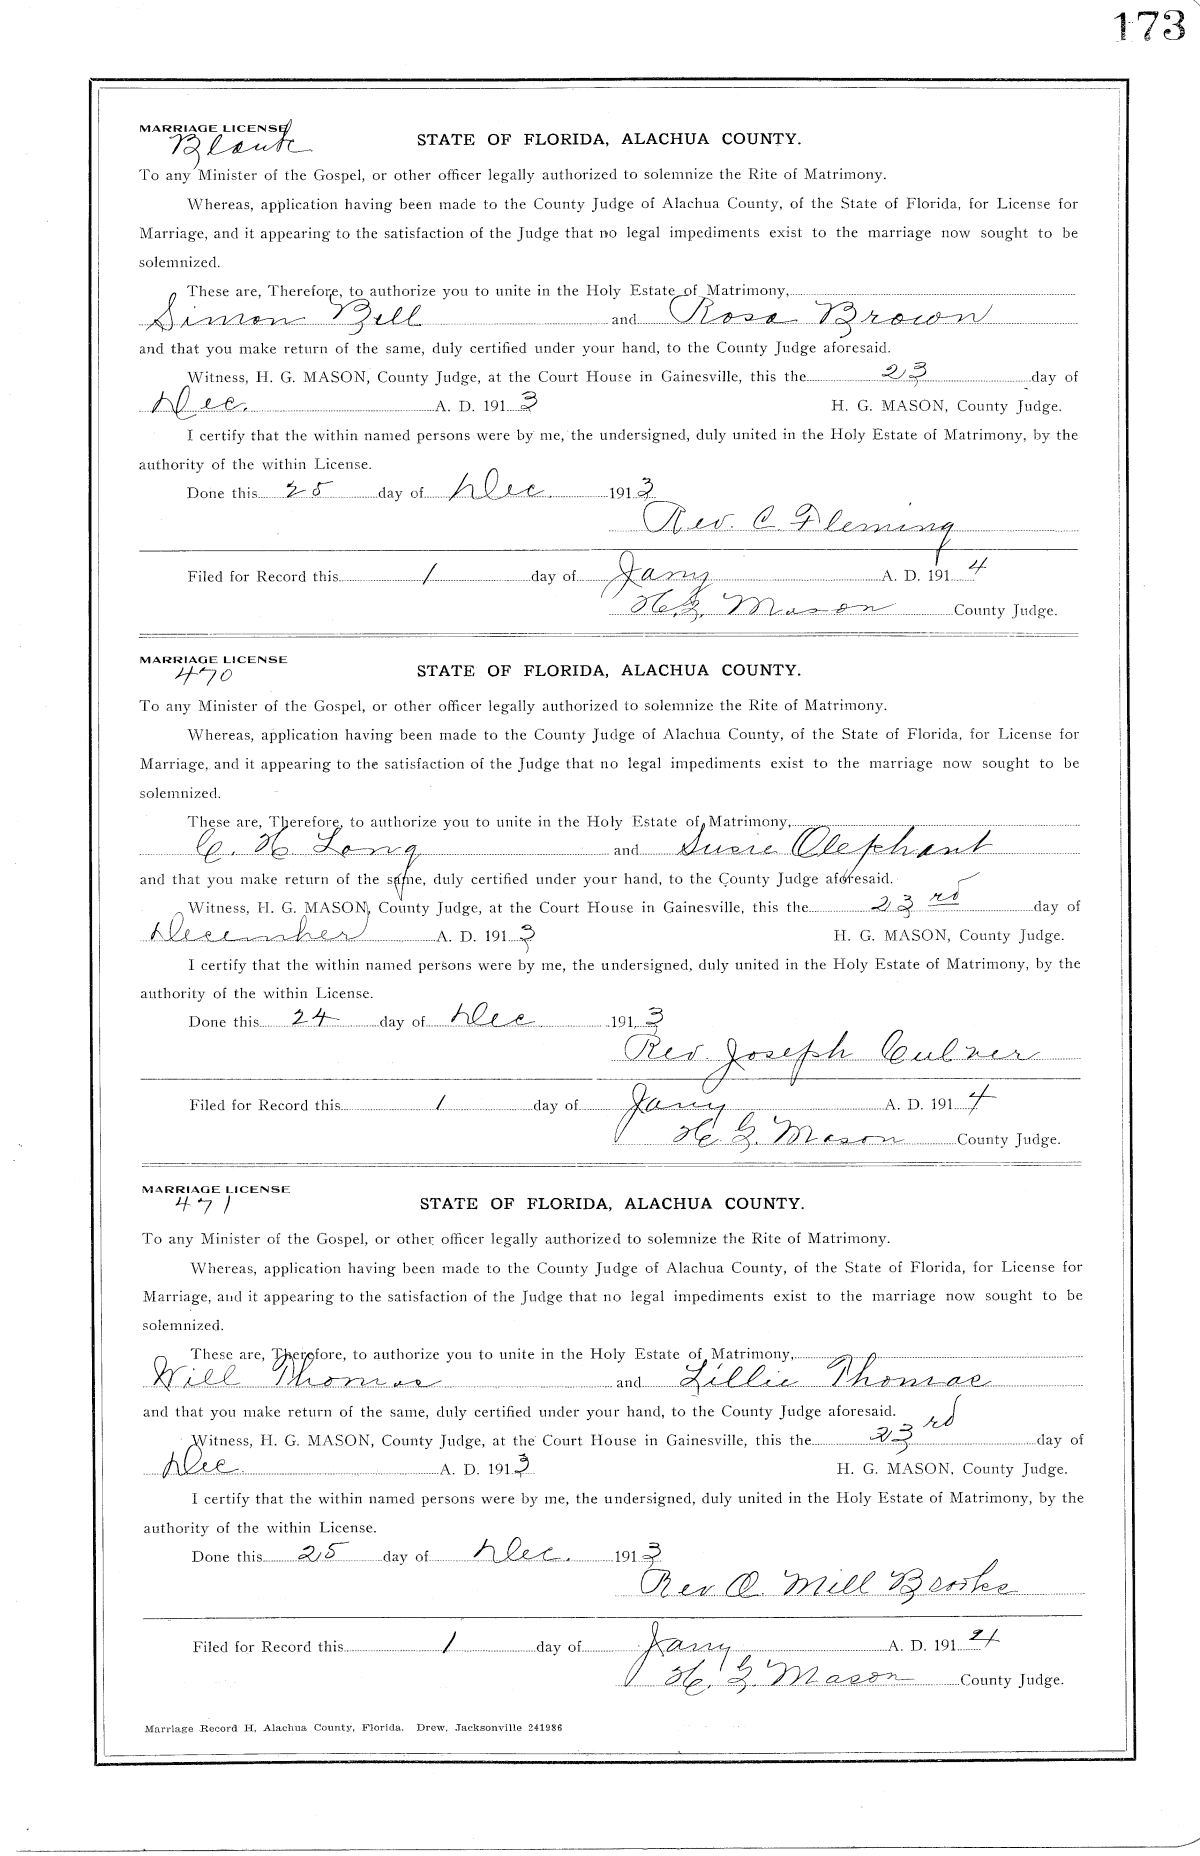 173
MARRIAGE LICENSE
Blank
STATE OF FLORIDA, ALACHUA COUNTY.
To any Minister of the Gospel, or other officer legally authorized to solemnize the Rite of Matrimony.
Whereas, application having been made to the County Judge of Alachua County, of the State of Florida, for License for
Marriage, and it appearing to the satisfaction of the Judge that no legal impediments exist to the marriage now sought to be
solemnized.
These are, Therefore, to authorize you to unite in the Holy Estate of Matrimony,
Simon Bell and Rosa Brown
and that you make return of the same, duly certified under your hand, to the County Judge aforesaid.
Witness, H. G. MASON, County Judge, at the Court House in Gainesville, this the 23 day of
Dec. A. D. 1913 H. G. MASON, County Judge.
I certify that the within named persons were by me, the undersigned, duly united in the Holy Estate of Matrimony, by the
authority of the within License.
Done this 25 day of Dec. 1913
Rev. C. Fleming
Filed for Record this 1 day of Jany A. D. 1914
H. G. Mason County Judge.
MARRIAGE LICENSE
470
STATE OF FLORIDA, ALACHUA COUNTY.
To any Minister of the Gospel, or other officer legally authorized to solemnize the Rite of Matrimony.
Whereas, application having been made to the County Judge of Alachua County, of the State of Florida, for License for
Marriage, and it appearing to the satisfaction of the Judge that no legal impediments exist to the marriage now sought to be
solemnized.
These are, Therefore, to authorize you to unite in the Holy Estate of Matrimony,
C. H. Long and Susie Olephant
and that you make return of the same, duly certified under your hand, to the County Judge aforesaid.
Witness, H. G. MASON, County Judge, at the Court House in Gainesville, this the 23rd day of
December A. D. 1913 H. G. MASON, County Judge.
I certify that the within named persons were by me, the undersigned, duly united in the Holy Estate of Matrimony, by the
authority of the within License.
Done this 24 day of Dec 1913
Rev. Joseph Culver
Filed for Record this 1 day of Jany A. D. 1914
H. G. Mason County Judge.
MARRIAGE LICENSE
471
STATE OF FLORIDA, ALACHUA COUNTY.
To any Minister of the Gospel, or other officer legally authorized to solemnize the Rite of Matrimony.
Whereas, application having been made to the County Judge of Alachua County, of the State of Florida, for License for
Marriage, and it appearing to the satisfaction of the Judge that no legal impediments exist to the marriage now sought to be
solemnized.
These are, Therefore, to authorize you to unite in the Holy Estate of Matrimony,
Will Thomas and Lillie Thomas
and that you make return of the same, duly certified under your hand, to the County Judge aforesaid.
Witness, H. G. MASON, County Judge, at the Court House in Gainesville, this the 23rd day of
Dec A. D. 1913 H. G. MASON, County Judge.
I certify that the within named persons were by me, the undersigned, duly united in the Holy Estate of Matrimony, by the
authority of the within License.
Done this 25 day of Dec. 1913
Rev O. Mill Brooks
Filed for Record this 1 day of Jany A. D. 1914
H. G. Mason County Judge.
Marriage Record H, Alachua County, Florida. Drew, Jacksonville 241986